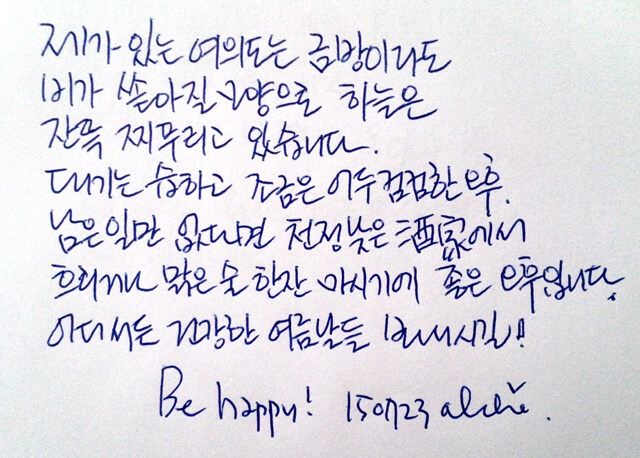 제가 있는 여의도는 금방이라도
비가 쏟아질 모양으로 하늘은
잔뜩 찌푸리고 있습니다.
대기는 습하고 조금은 어두컴컴한 오후.
남은 일만 없다면 천정 낮은 酒家에서
흐리거나 맑은 술 한잔 마시기에 좋은 오후입니다.
어디서든 건강한 여름날들 보내시길!
Be happy! 150723